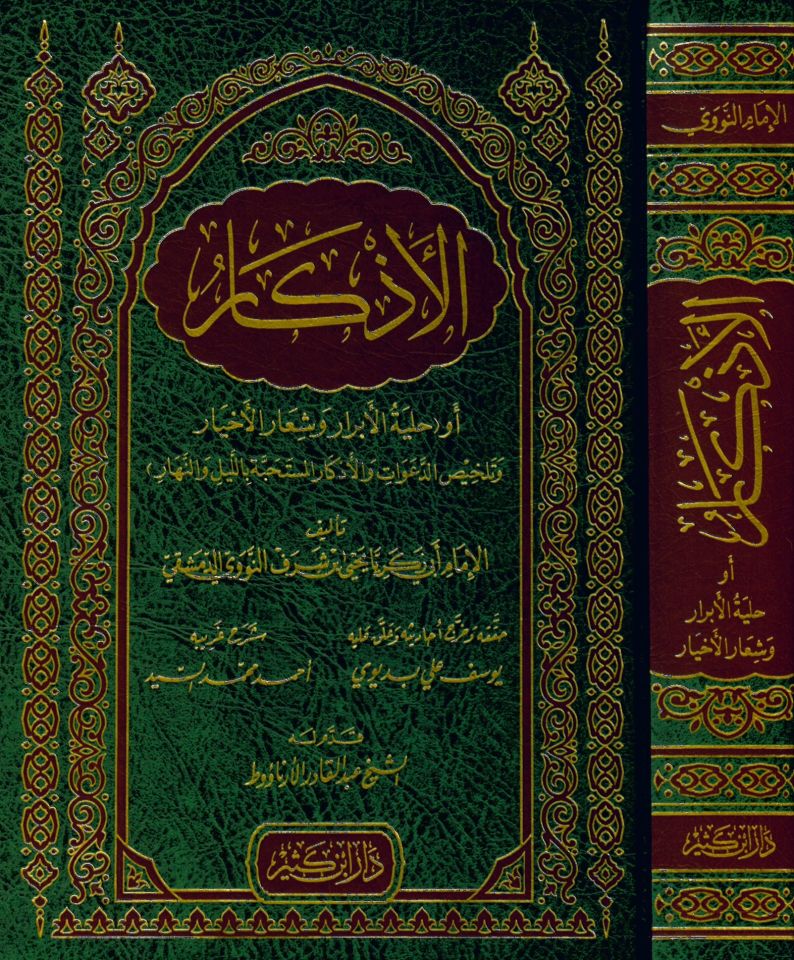 الأذكار
أو (حلية الأبرار وشعار الأخيار
وتلخيص الدعوات والأذكار المستحبة بالليل والنهار)
تأليف
الإمام أبي زكريا يحيى بن شرف النووي الدمشقي
حققه وخرج أحاديثه وعلق عليه
يوسف علي بديوي
شرح غريبه
أحمد محمد السيد
قدم له
الشيخ عبد القادر الأرناؤوط
دار ابن كثير
الإمام النووي
الأذكار
أو
حلية الأبرار
وشعار الأخيار
دار ابن كثير